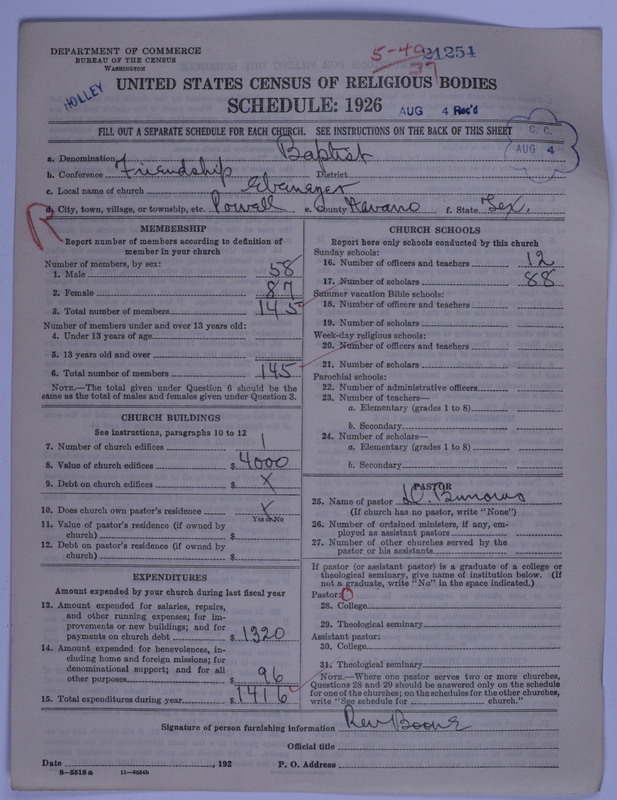 DEPARTMENT OF COMMERCE
BUREAU OF THE CENSUS
WASHINGTON
5-40 21251
37
HOLLEY
UNITED STATES CENSUS OF RELIGIOUS BODIES
SCHEDULE: 1926
AUG 4 Rec'd
FILL OUT A SEPARATE SCHEDULE FOR EACH CHURCH. SEE INSTRUCTIONS ON THE BACK OF THIS SHEET
C. C.
AUG 4
a. Denomination Baptist
b. Conference Friendship District
c. Local name of church Ebenezer
d. City, town, village, or township, etc. Powell e. County Navarro f. State Tex.
R
MEMBERSHIP
Report number of members according to definition of member in your church
Number of members, by sex:
1. Male 58
2. Female 87
3. Total number of members 145
Number of members under and over 13 years old:
4. Under 13 years of age
5. 13 years old and over
6. Total number of members 145
NOTE.—The total given under Question 6 should be the same as the total of males and females given under Question 3.
CHURCH BUILDINGS
See instructions, paragraphs 10 to 12
7. Number of church edifices 1
8. Value of church edifices $ 4000
9. Debt on church edifices $ X
10. Does church own pastor's residence X
Yes or No
11. Value of pastor's residence (if owned by church) $
12. Debt on pastor's residence (if owned by church) $
EXPENDITURES
Amount expended by your church during last fiscal year
13. Amount expended for salaries, repairs, and other running expenses; for improvements or new buildings; and for payments on church debt $ 1320
14. Amount expended for benevolences, including home and foreign missions; for denominational support; and for all other purposes $ 96
15. Total expenditures during year $ 1416
CHURCH SCHOOLS
Report here only schools conducted by this church
Sunday schools:
16. Number of officers and teachers 12
17. Number of scholars 88
Summer vacation Bible schools:
18. Number of officers and teachers
19. Number of scholars
Week-day religious schools:
20. Number of officers and teachers
21. Number of scholars
Parochial schools:
22. Number of administrative officers
23. Number of teachers—
a. Elementary (grades 1 to 8)
b. Secondary
24. Number of scholars—
a. Elementary (grades 1 to 8)
b. Secondary
PASTOR
25. Name of pastor
(If church has no pastor, write "None")
26. Number of ordained ministers, if any, employed as assistant pastors
27. Number of other churches served by the pastor or his assistants
If pastor (or assistant pastor) is a graduate of a college or theological seminary, give name of institution below. (If not a graduate, write "No" in the space indicated.)
Pastor: O
28. College
29. Theological seminary
Assistant pastor:
30. College
31. Theological seminary
NOTE.—Where one pastor serves two or more churches, Questions 28 and 29 should be answered only on the schedule for one of the churches; on the schedules for the other churches, write "See schedule for church."
Signature of person furnishing information Rev Boone
Official title
Date , 192 P. O. Address
8—5518a 11—9034b